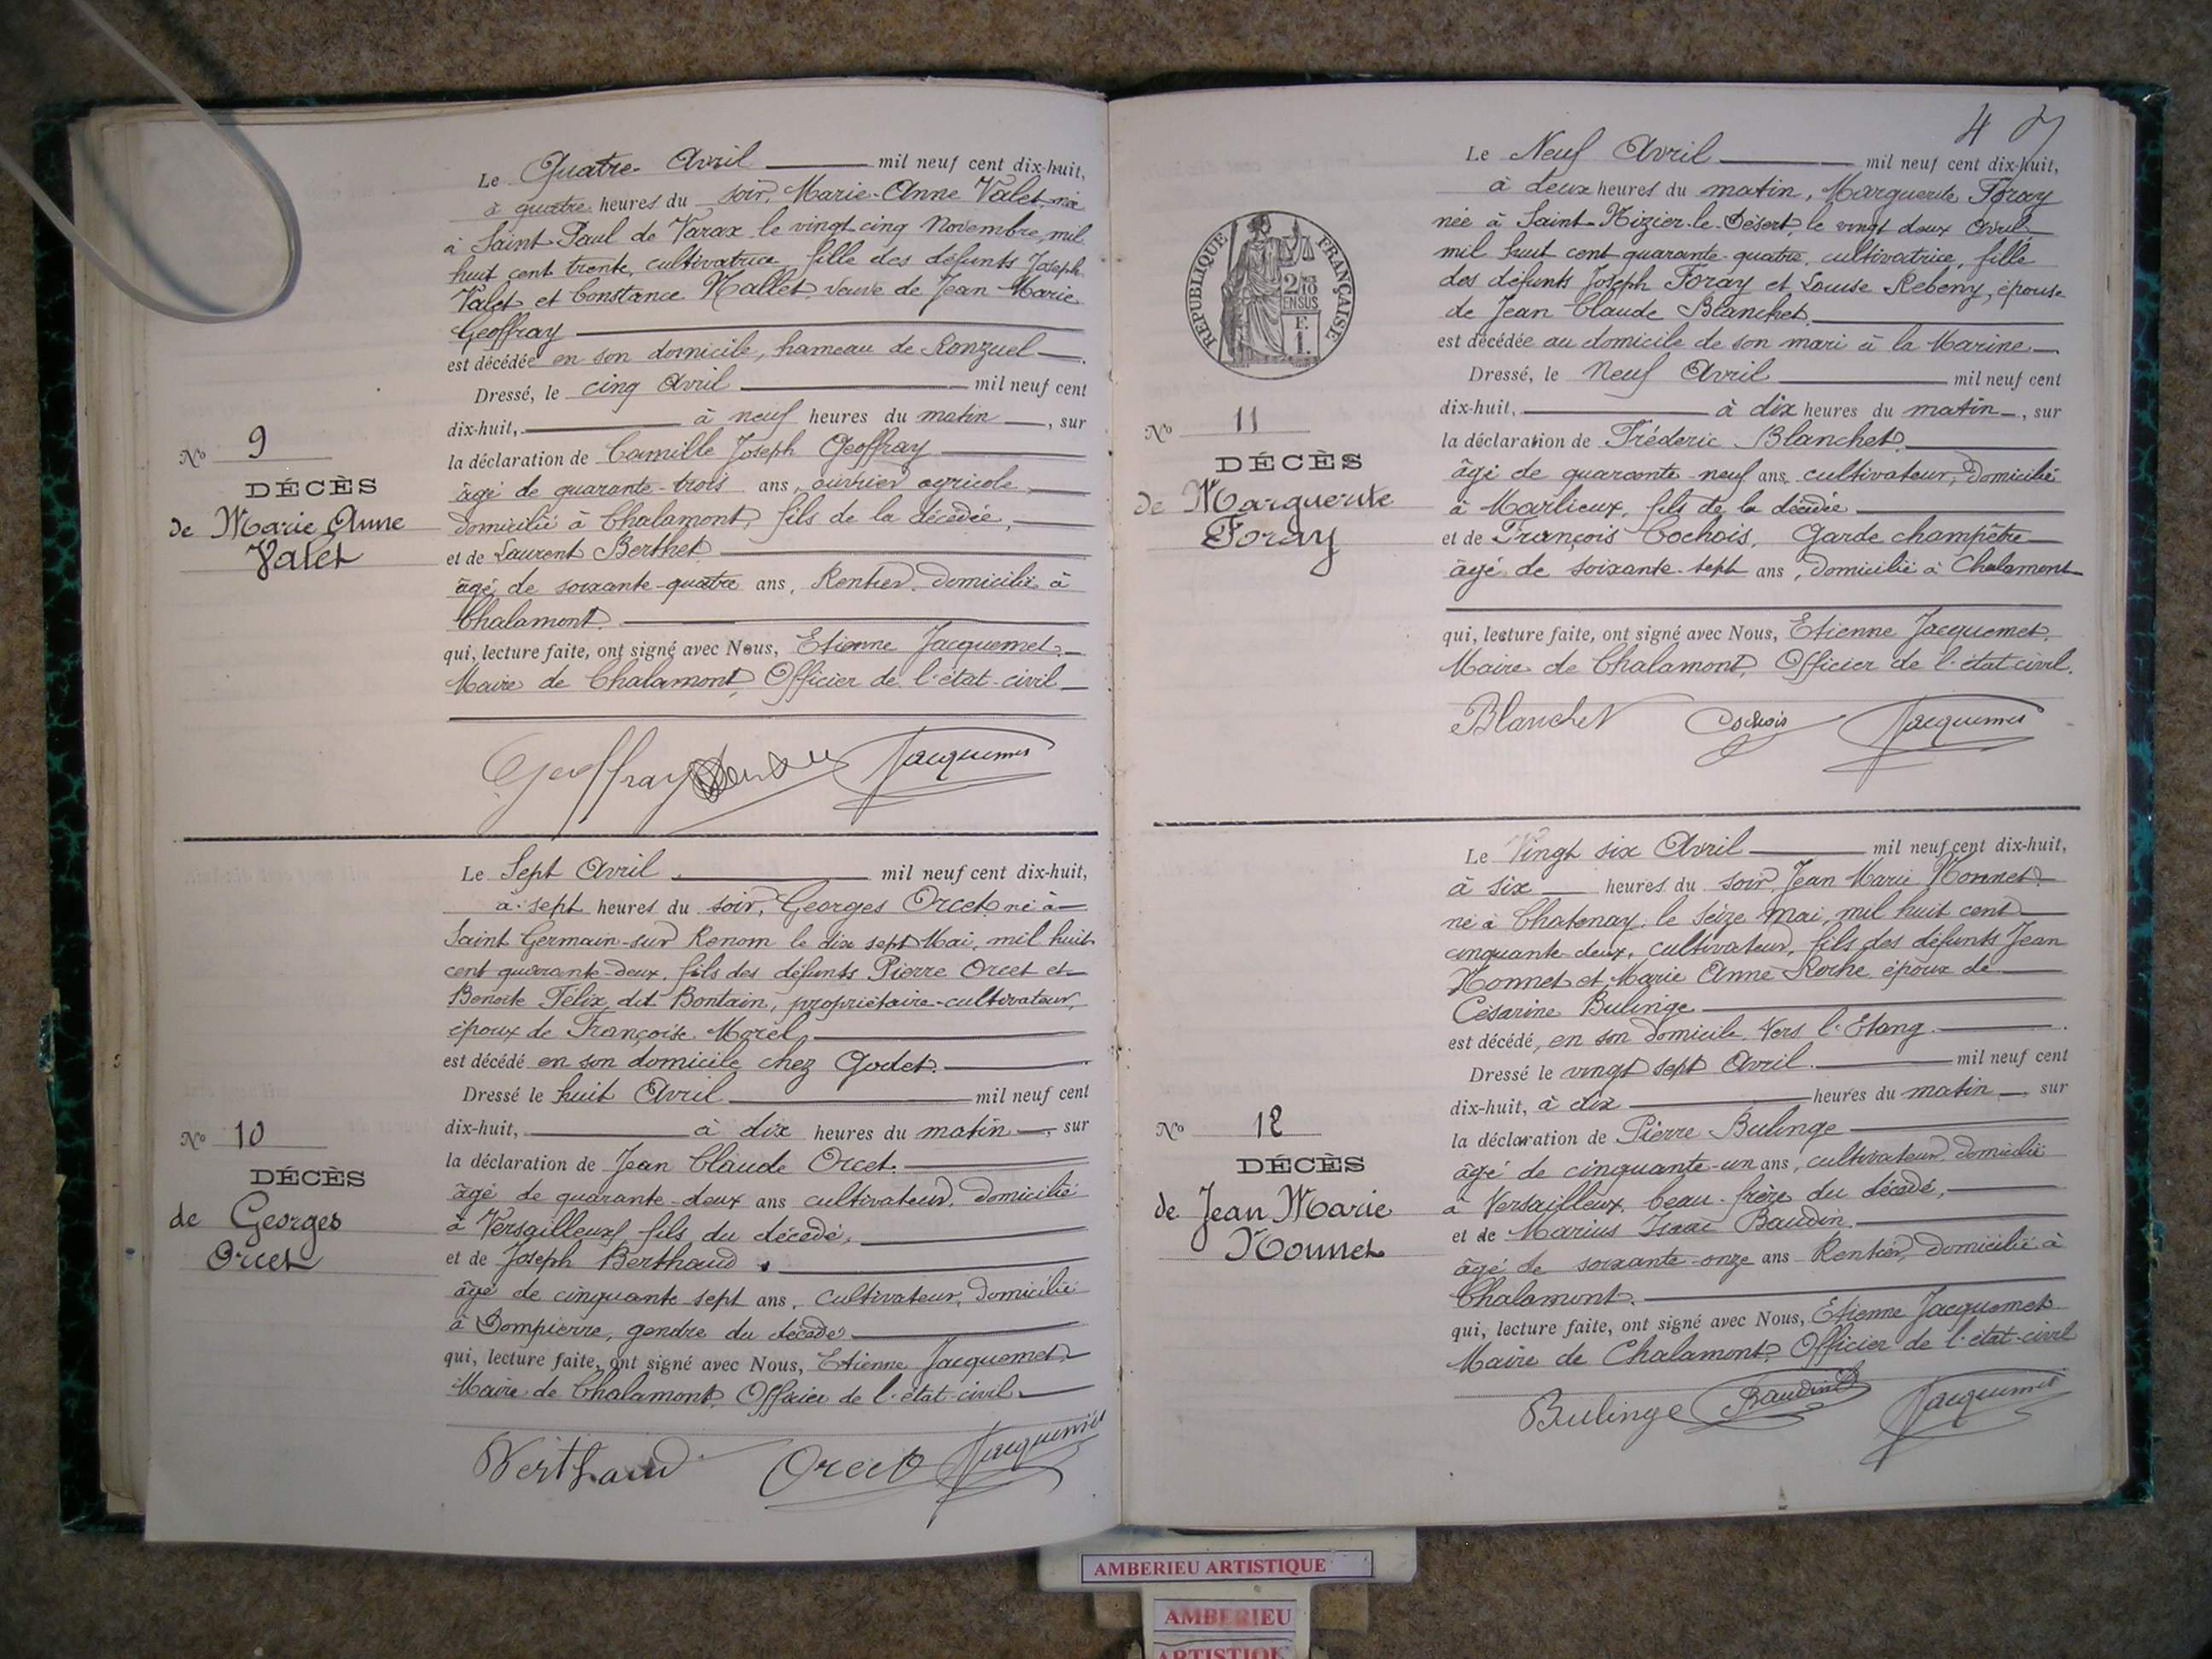 Le Quatre Avril mil neuf cent dix-huit,
à quatre heures du soir, Marie-Anne Valet née
à Saint Paul de Varax le vingt cinq Novembre mil
huit cent trente, cultivatrice, fille des défunts Joseph
Valet et Constance Nallet, veuve de Jean Marie
Geoffray
est décédée en son domicile, hameau de Ronzuel
Dressé, le cinq Avril mil neuf cent
dix-huit, à neuf heures du matin, sur
la déclaration de Camille Joseph Geoffray
âgé de quarante-trois ans, ouvrier agricole,
domicilié à Chalamont, fils de la décédée,
et de Laurent Berthet
âgé de soixante-quatre ans, Rentier, domicilié à
Chalamont.
qui, lecture faite, ont signé avec Nous, Etienne Jacquemet,
Maire de Chalamont, Officier de l'état-civil
Geoffray Jacquemet
No 9
DÉCÈS
de Marie Anne
Valet
Le Sept Avril mil neuf cent dix-huit,
à sept heures du soir, Georges Orcet né à
Saint Germain-sur Renom le dix sept Mai, mil huit
cent quarante-deux, fils des défunts Pierre Orcet et
Benoite Félix dit Bontain, propriétaire-cultivateur,
époux de Françoise Morel
est décédé en son domicile chez Godet.
Dressé le huit Avril mil neuf cent
dix-huit, à dix heures du matin, sur
la déclaration de Jean Claude Orcet.
âgé de quarante-deux ans cultivateur, domicilié
à Versailleux, fils du décédé,
et de Joseph Berthaud
âgé de cinquante sept ans, cultivateur, domicilié
à Dompierre, gendre du décédé
qui, lecture faite, ont signé avec Nous, Etienne Jacquemet,
Maire de Chalamont, Officier de l'état-civil.
Berthaud Orcet Jacquemet
No 10
DÉCÈS
de Georges
Orcet
4
RÉPUBLIQUE FRANÇAISE
Le Neuf Avril mil neuf cent dix-huit,
à deux heures du matin, Marguerite Foray
née à Saint-Nizier-le-Désert, le vingt deux Avril
mil huit cent quarante-quatre, cultivatrice, fille
des défunts Joseph Foray et Louise Rebeny, épouse
de Jean Claude Blanchet.
est décédée au domicile de son mari à la Marine
Dressé, le Neuf Avril mil neuf cent
dix-huit, à dix heures du matin, sur
la déclaration de Frédéric Blanchet
âgé de quarante-neuf ans, cultivateur, domicilié
à Marlieux, fils de la décédée
et de François Cochois, Garde champêtre
âgé de soixante-sept ans, domicilié à Chalamont
qui, lecture faite, ont signé avec Nous, Etienne Jacquemet,
Maire de Chalamont, Officier de l'état-civil.
Blanchet Cochois Jacquemet
No 11
DÉCÈS
de Marguerite
Foray
Le Vingt six Avril mil neuf cent dix-huit,
à six heures du soir, Jean Marie Nonnet
né à Chatenay, le seize mai, mil huit cent
cinquante-deux, cultivateur, fils des défunts Jean
Nonnet et Marie Anne Roche époux de
Césarine Bulinge
est décédé, en son domicile Vers l'Etang
Dressé le vingt sept Avril mil neuf cent
dix-huit, à dix heures du matin, sur
la déclaration de Pierre Bulinge
âgé de cinquante-un ans, cultivateur, domicilié
à Versailleux, beau-frère du décédé,
et de Marius Isaac Baudin
âgé de soixante-onze ans Rentier, domicilié à
Chalamont.
qui, lecture faite, ont signé avec Nous, Etienne Jacquemet
Maire de Chalamont, Officier de l'état-civil
Bulinge Baudin Jacquemet
No 12
DÉCÈS
de Jean Marie
Nonnet
AMBERIEU ARTISTIQUE
AMBERIEU